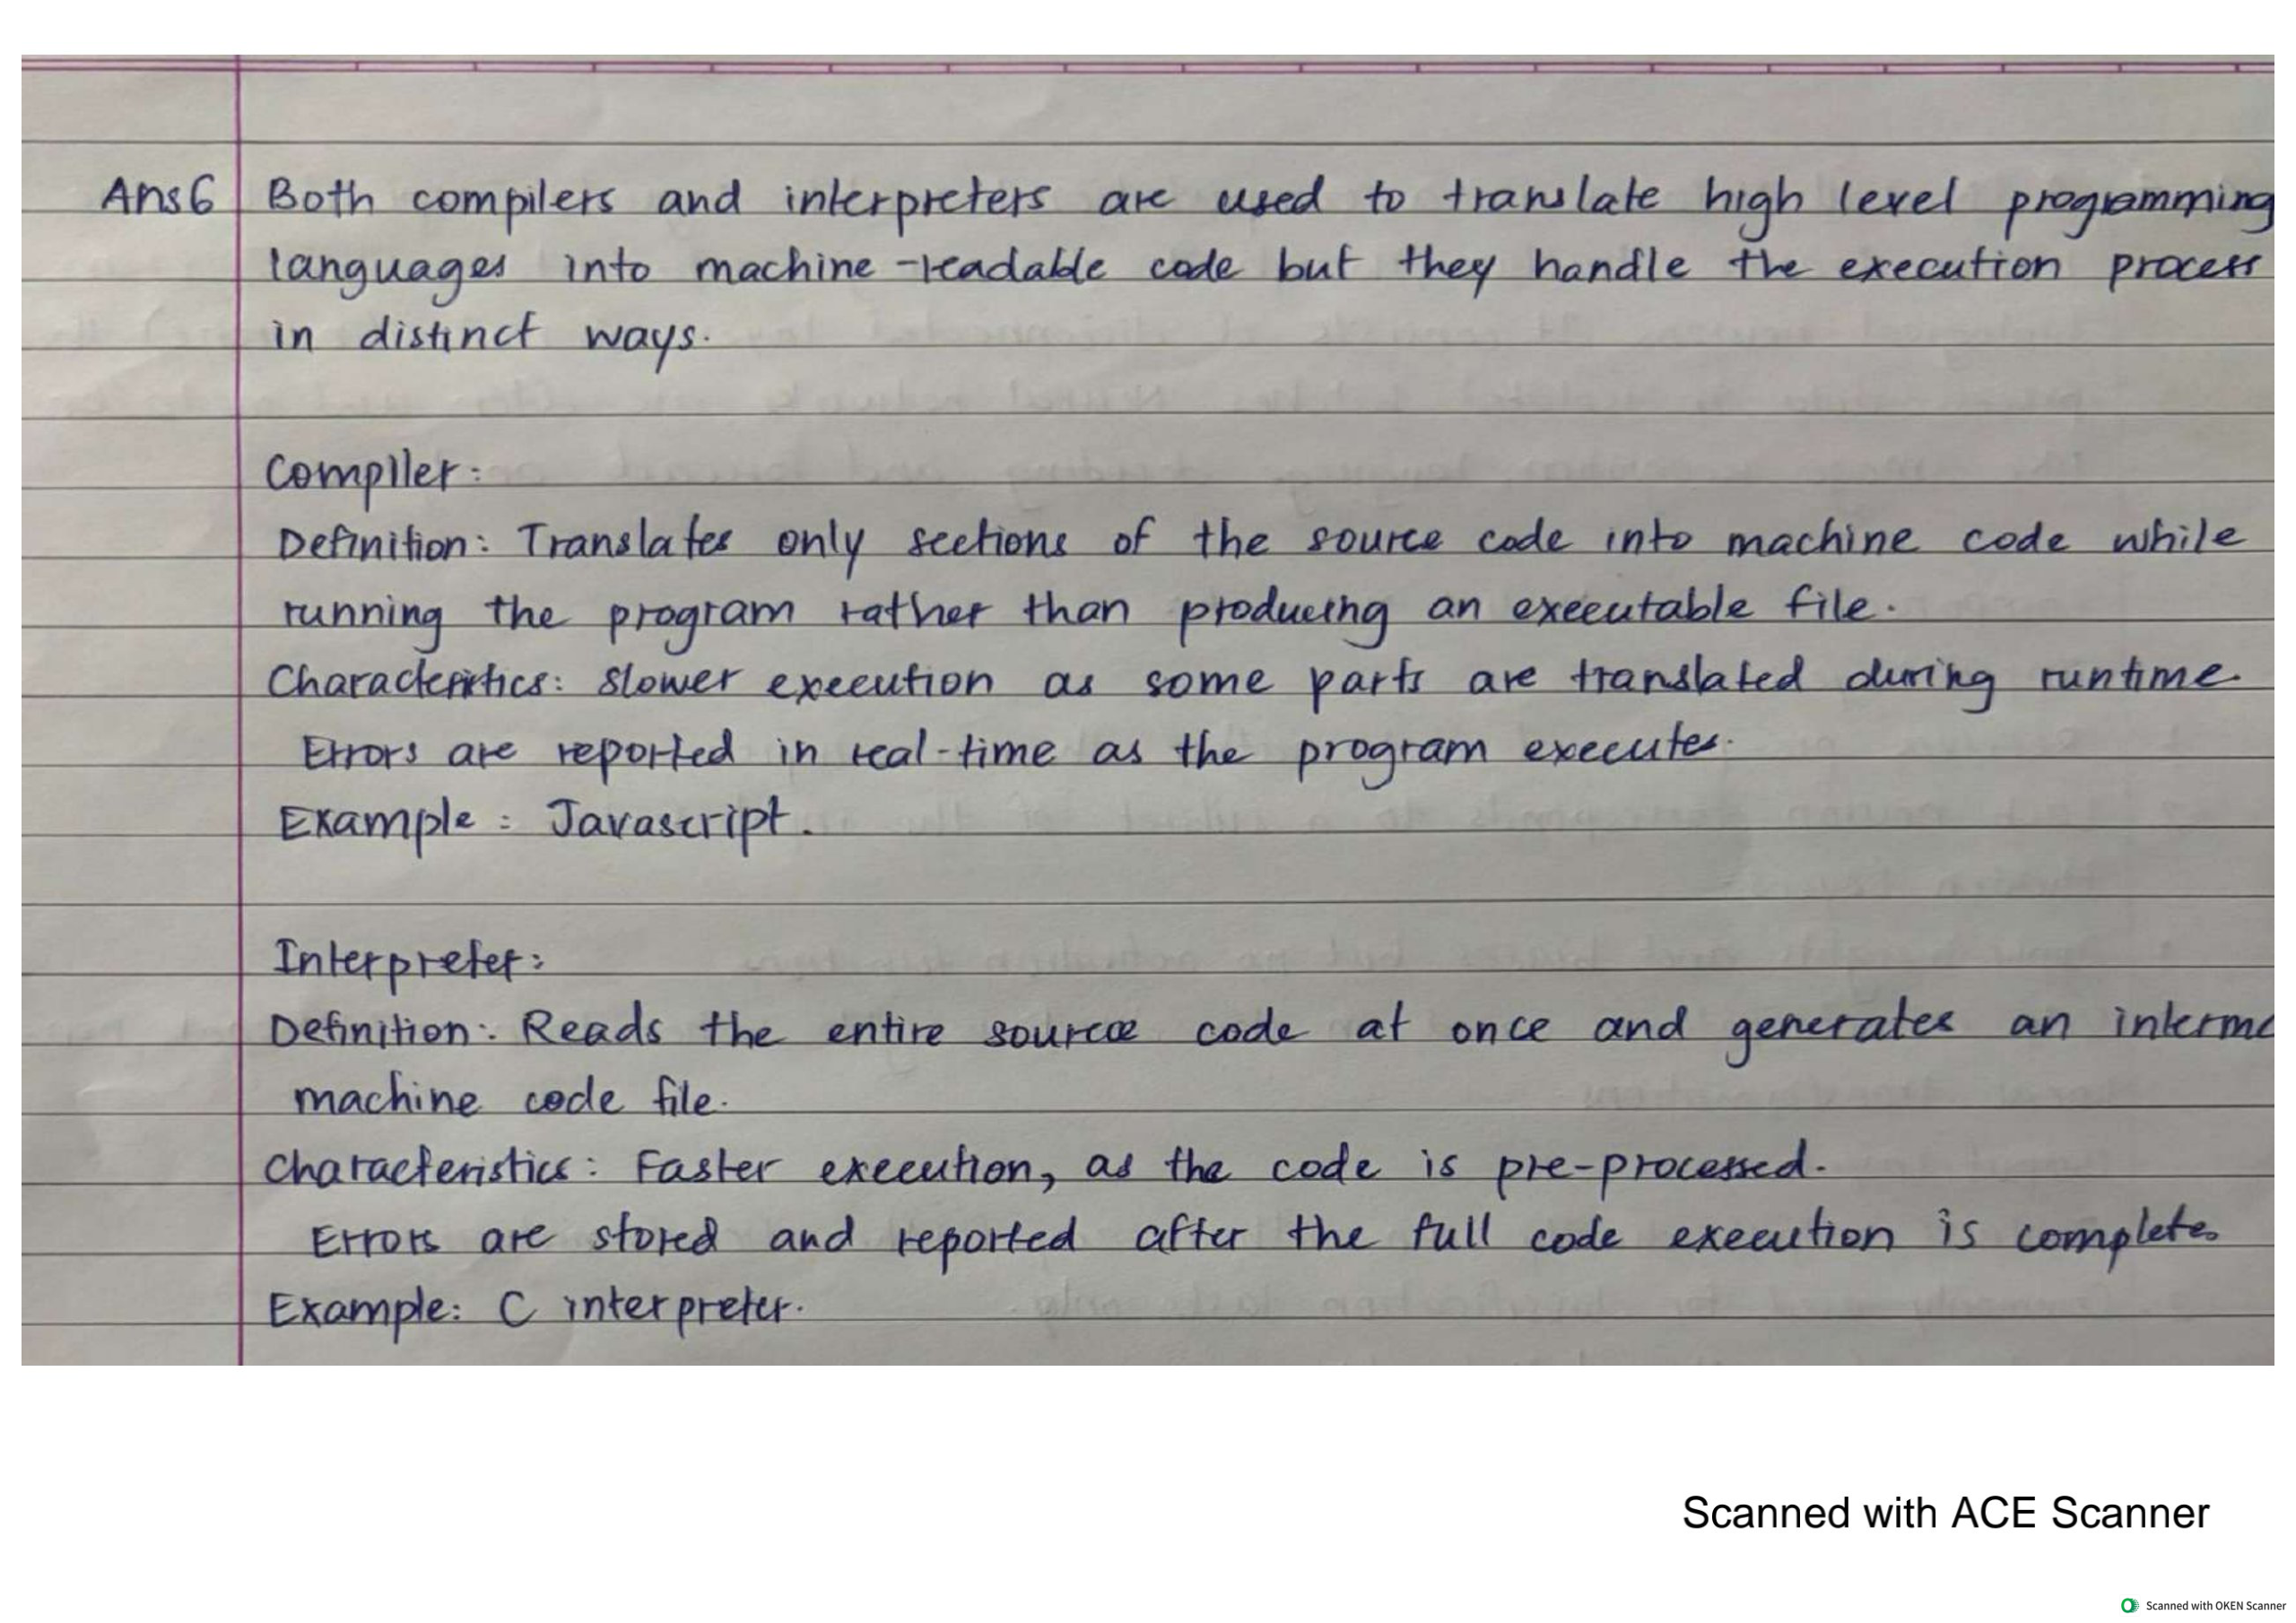 Ans6 Both compilers and interpreters are used to translate high level programming
languages into machine-readable code but they handle the execution process
in distinct ways.
Compiler:
Definition: Translates only sections of the source code into machine code while
running the program rather than producing an executable file.
Characteristics: Slower execution as some parts are translated during runtime.
Errors are reported in real-time as the program executes.
Example: Javascript.
Interpreter:
Definition: Reads the entire source code at once and generates an interme
machine code file.
Characteristics: Faster execution, as the code is pre-processed.
Errors are stored and reported after the full code execution is complete.
Example: C interpreter.
Scanned with ACE Scanner
Scanned with OKEN Scanner